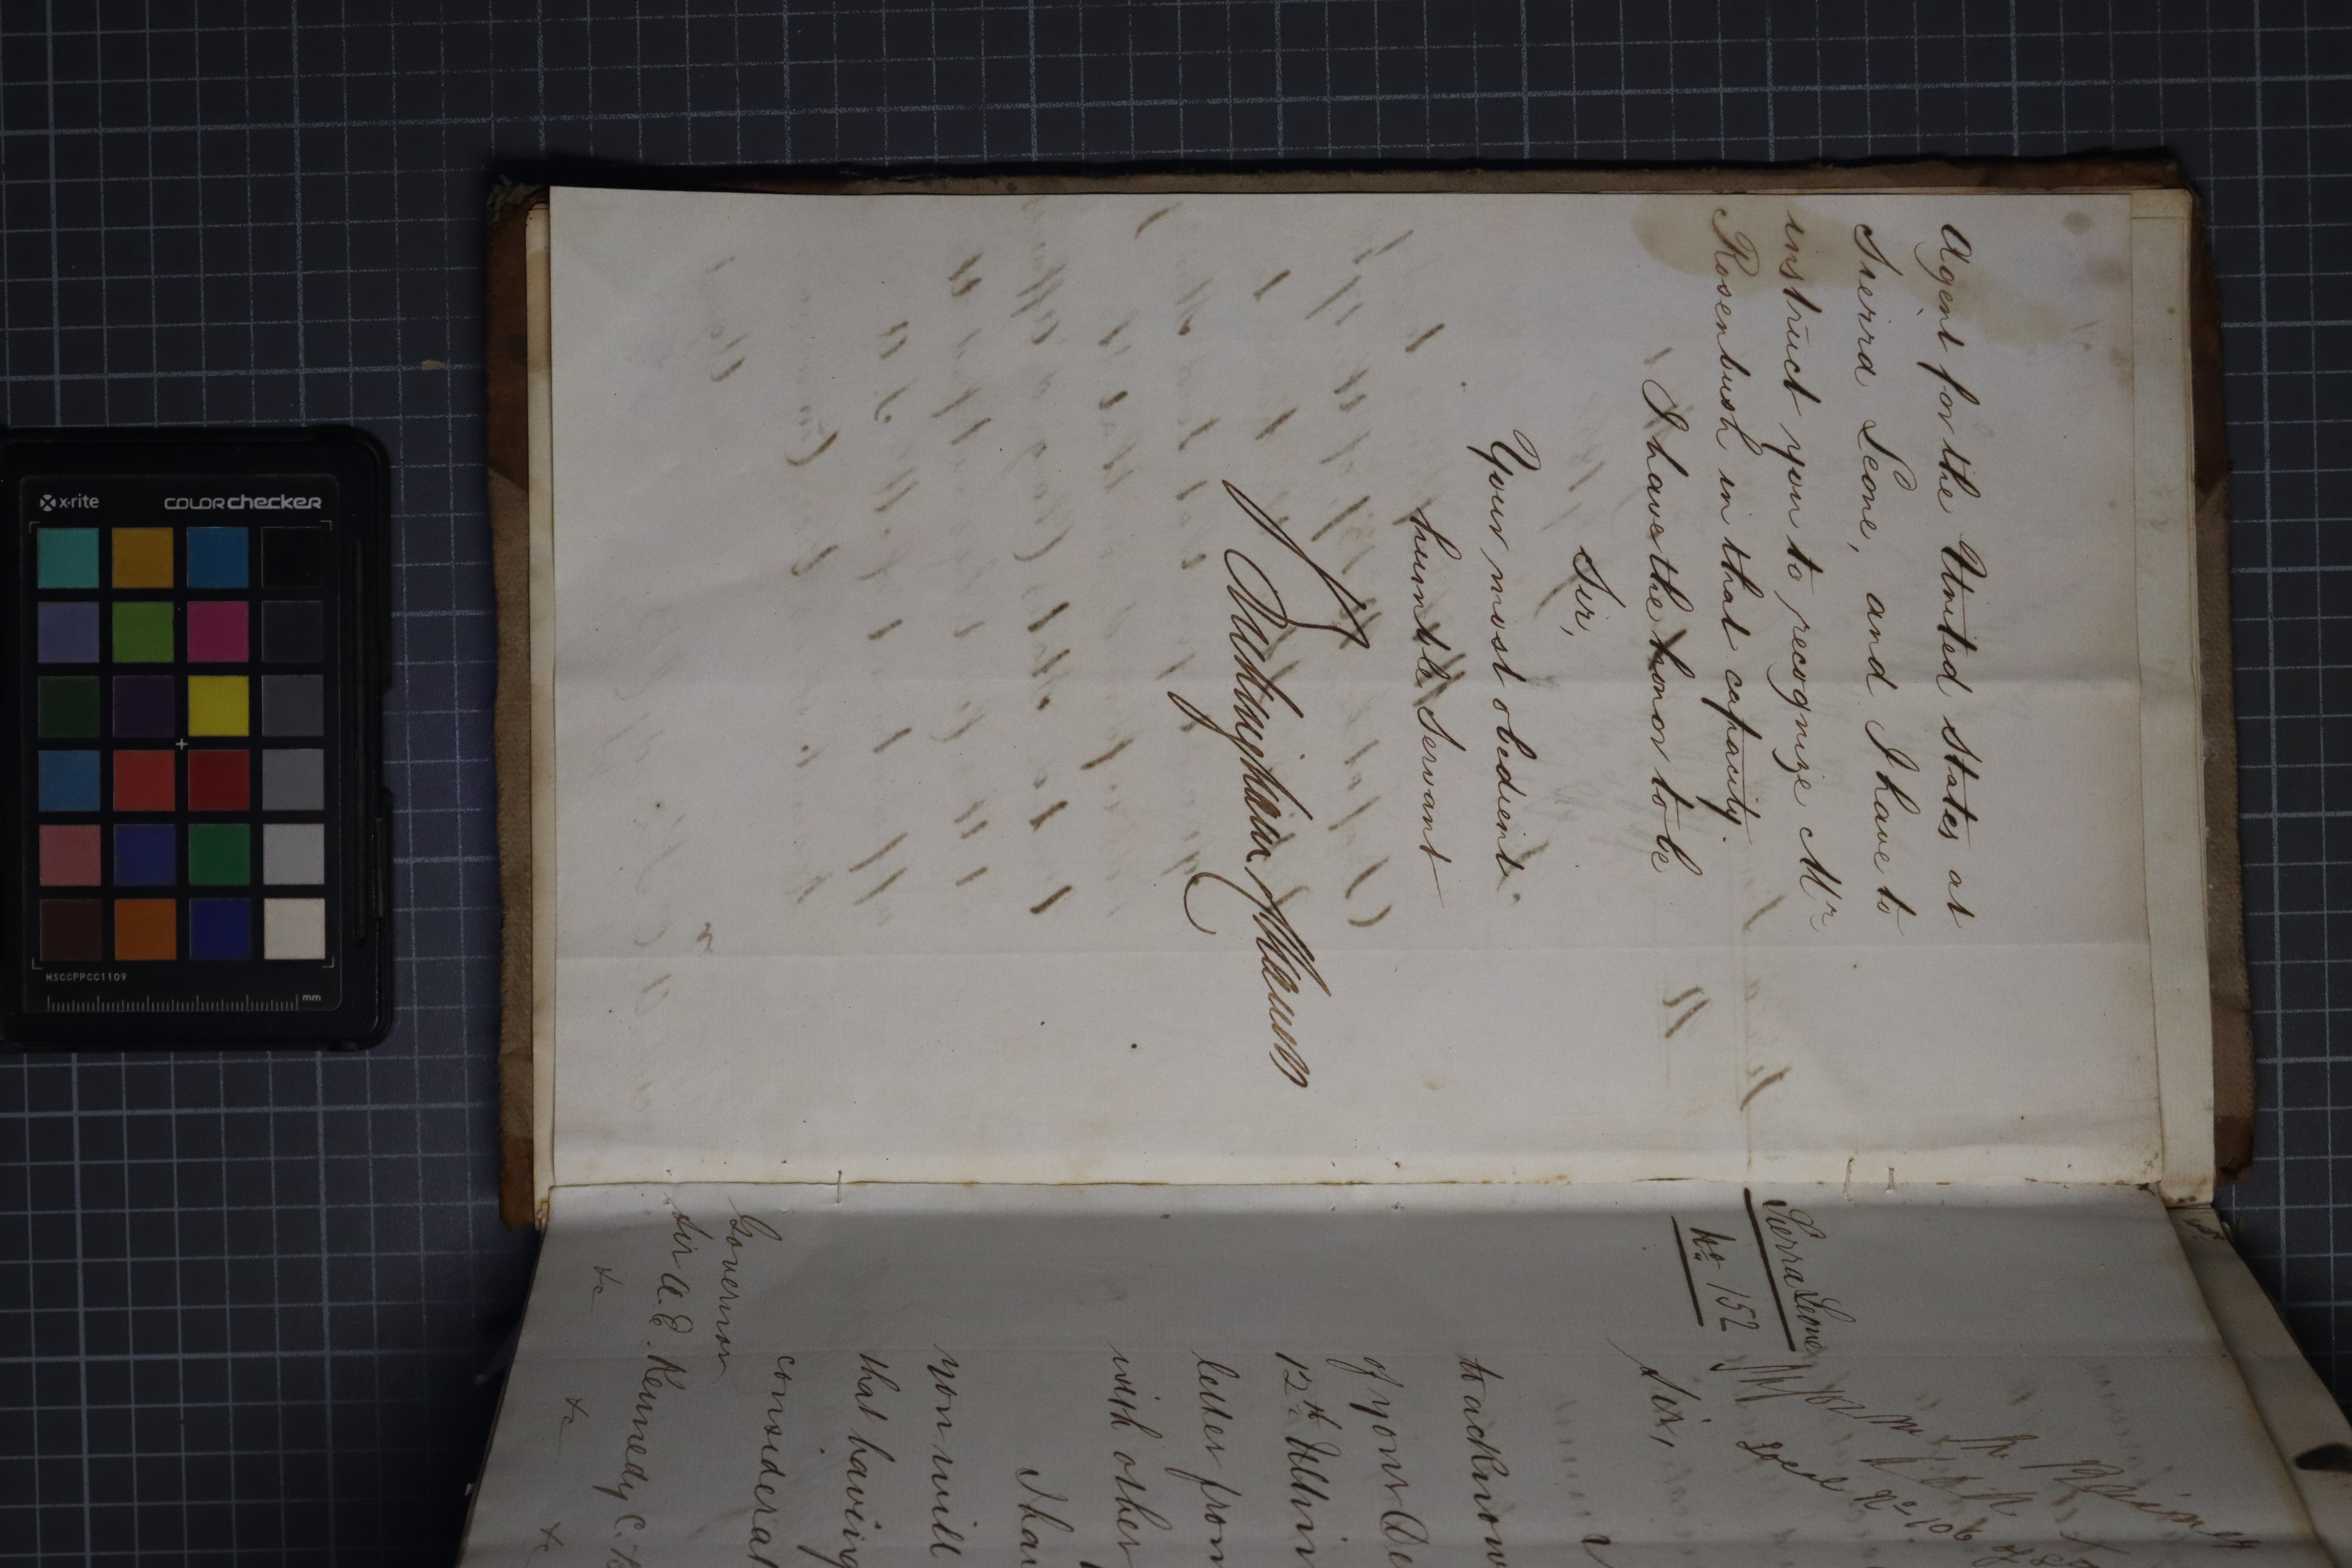 Agent for the United States at
Sierra Leone, and I have to
instruct you to recognize Mr
Rosenbush in that capacity.
I have the honor to be
Sir,
Your most obedient
humble Servant
Buckingham & Chandos
Sierra Leone
No. 152
Sir,
to acknow
of your De
12th Ultim
letter from
with other
I hav
you will
that having
considerat
Governor
Sir A. E. Kennedy C.B.
&c &c &c
x-rite
colorchecker
MSCCPPCC1109
mm